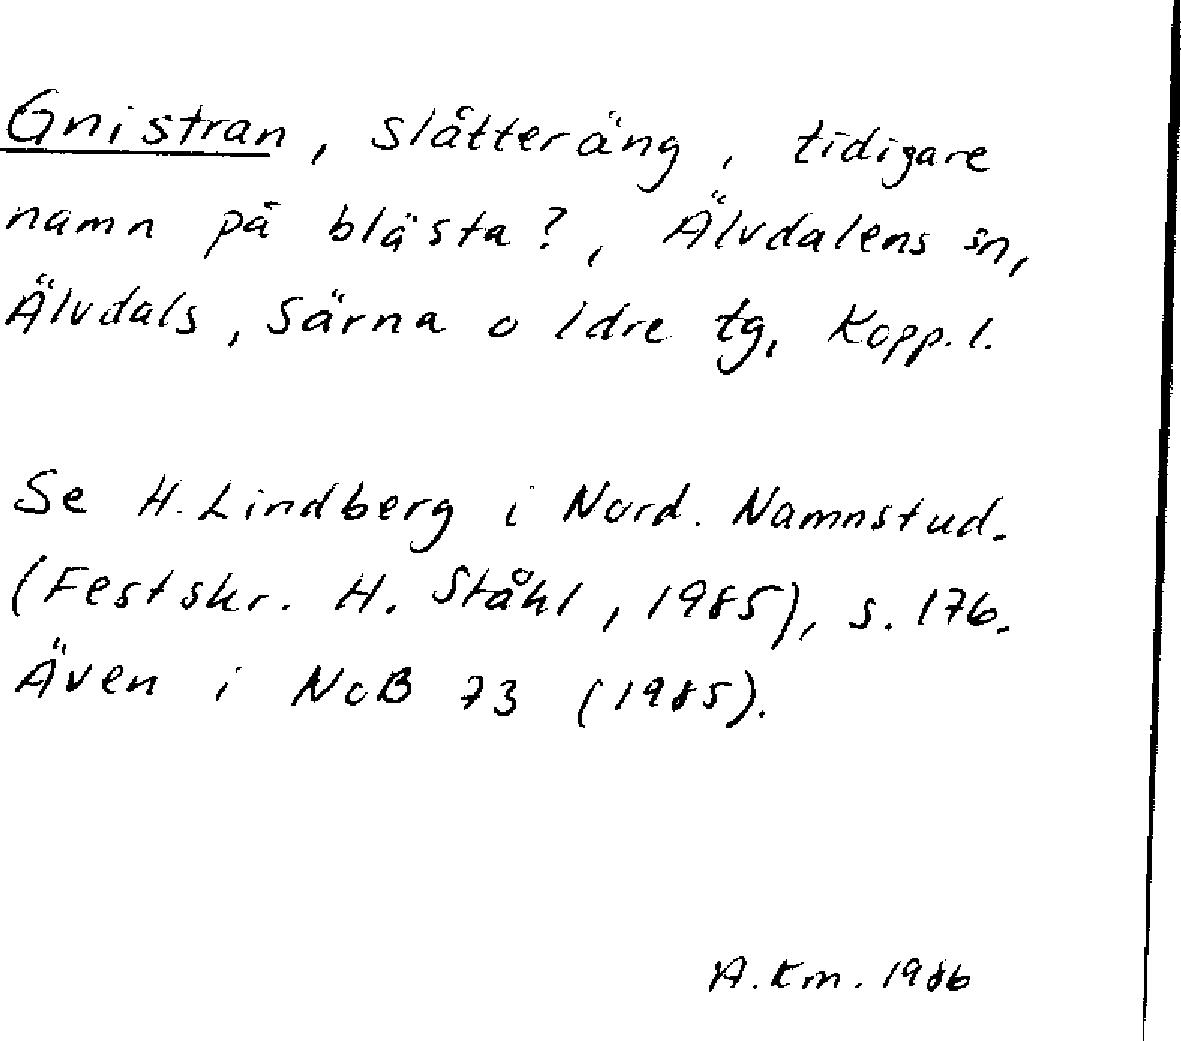 Gnistran, slåtteräng, tidigare
namn på blästa?, Älvdalens sn,
Älvdals, Särna o Idre tg, Kopp. l.
Se H. Lindberg i Nord. Namnstud.
(Festskr. H. Ståhl, 1985), s. 176.
Även i NoB 73 (1985).
A. Km. 1986